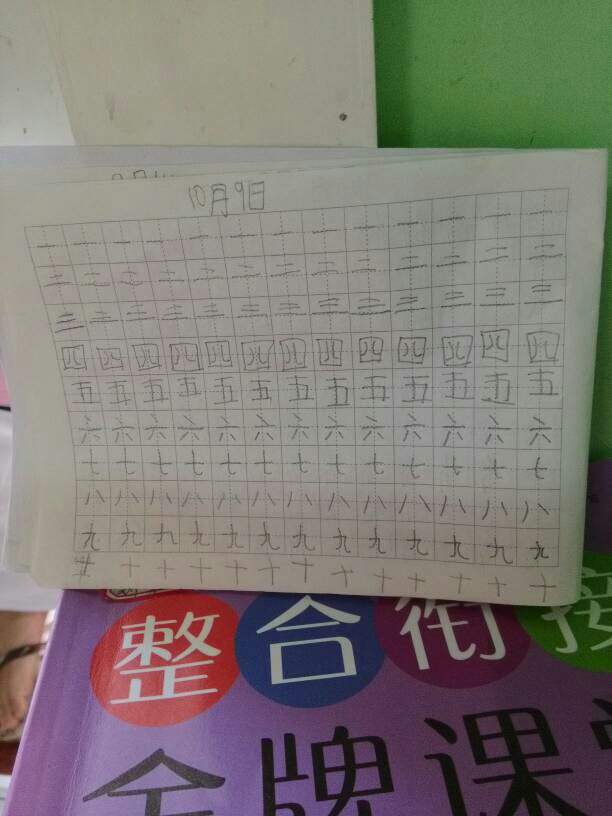 10月9日
一一一一一一一一一一一一一
二二二二二二二二二二二二二
三三三三三三三三三三三三三
四四四四四四四四四四四四四
五五五五五五五五五五五五五
六六六六六六六六六六六六六
七七七七七七七七七七七七七
八八八八八八八八八八八八八
九九九九九九九九九九九九九
十十十十十十十十十十十十
整合衔接
金牌课